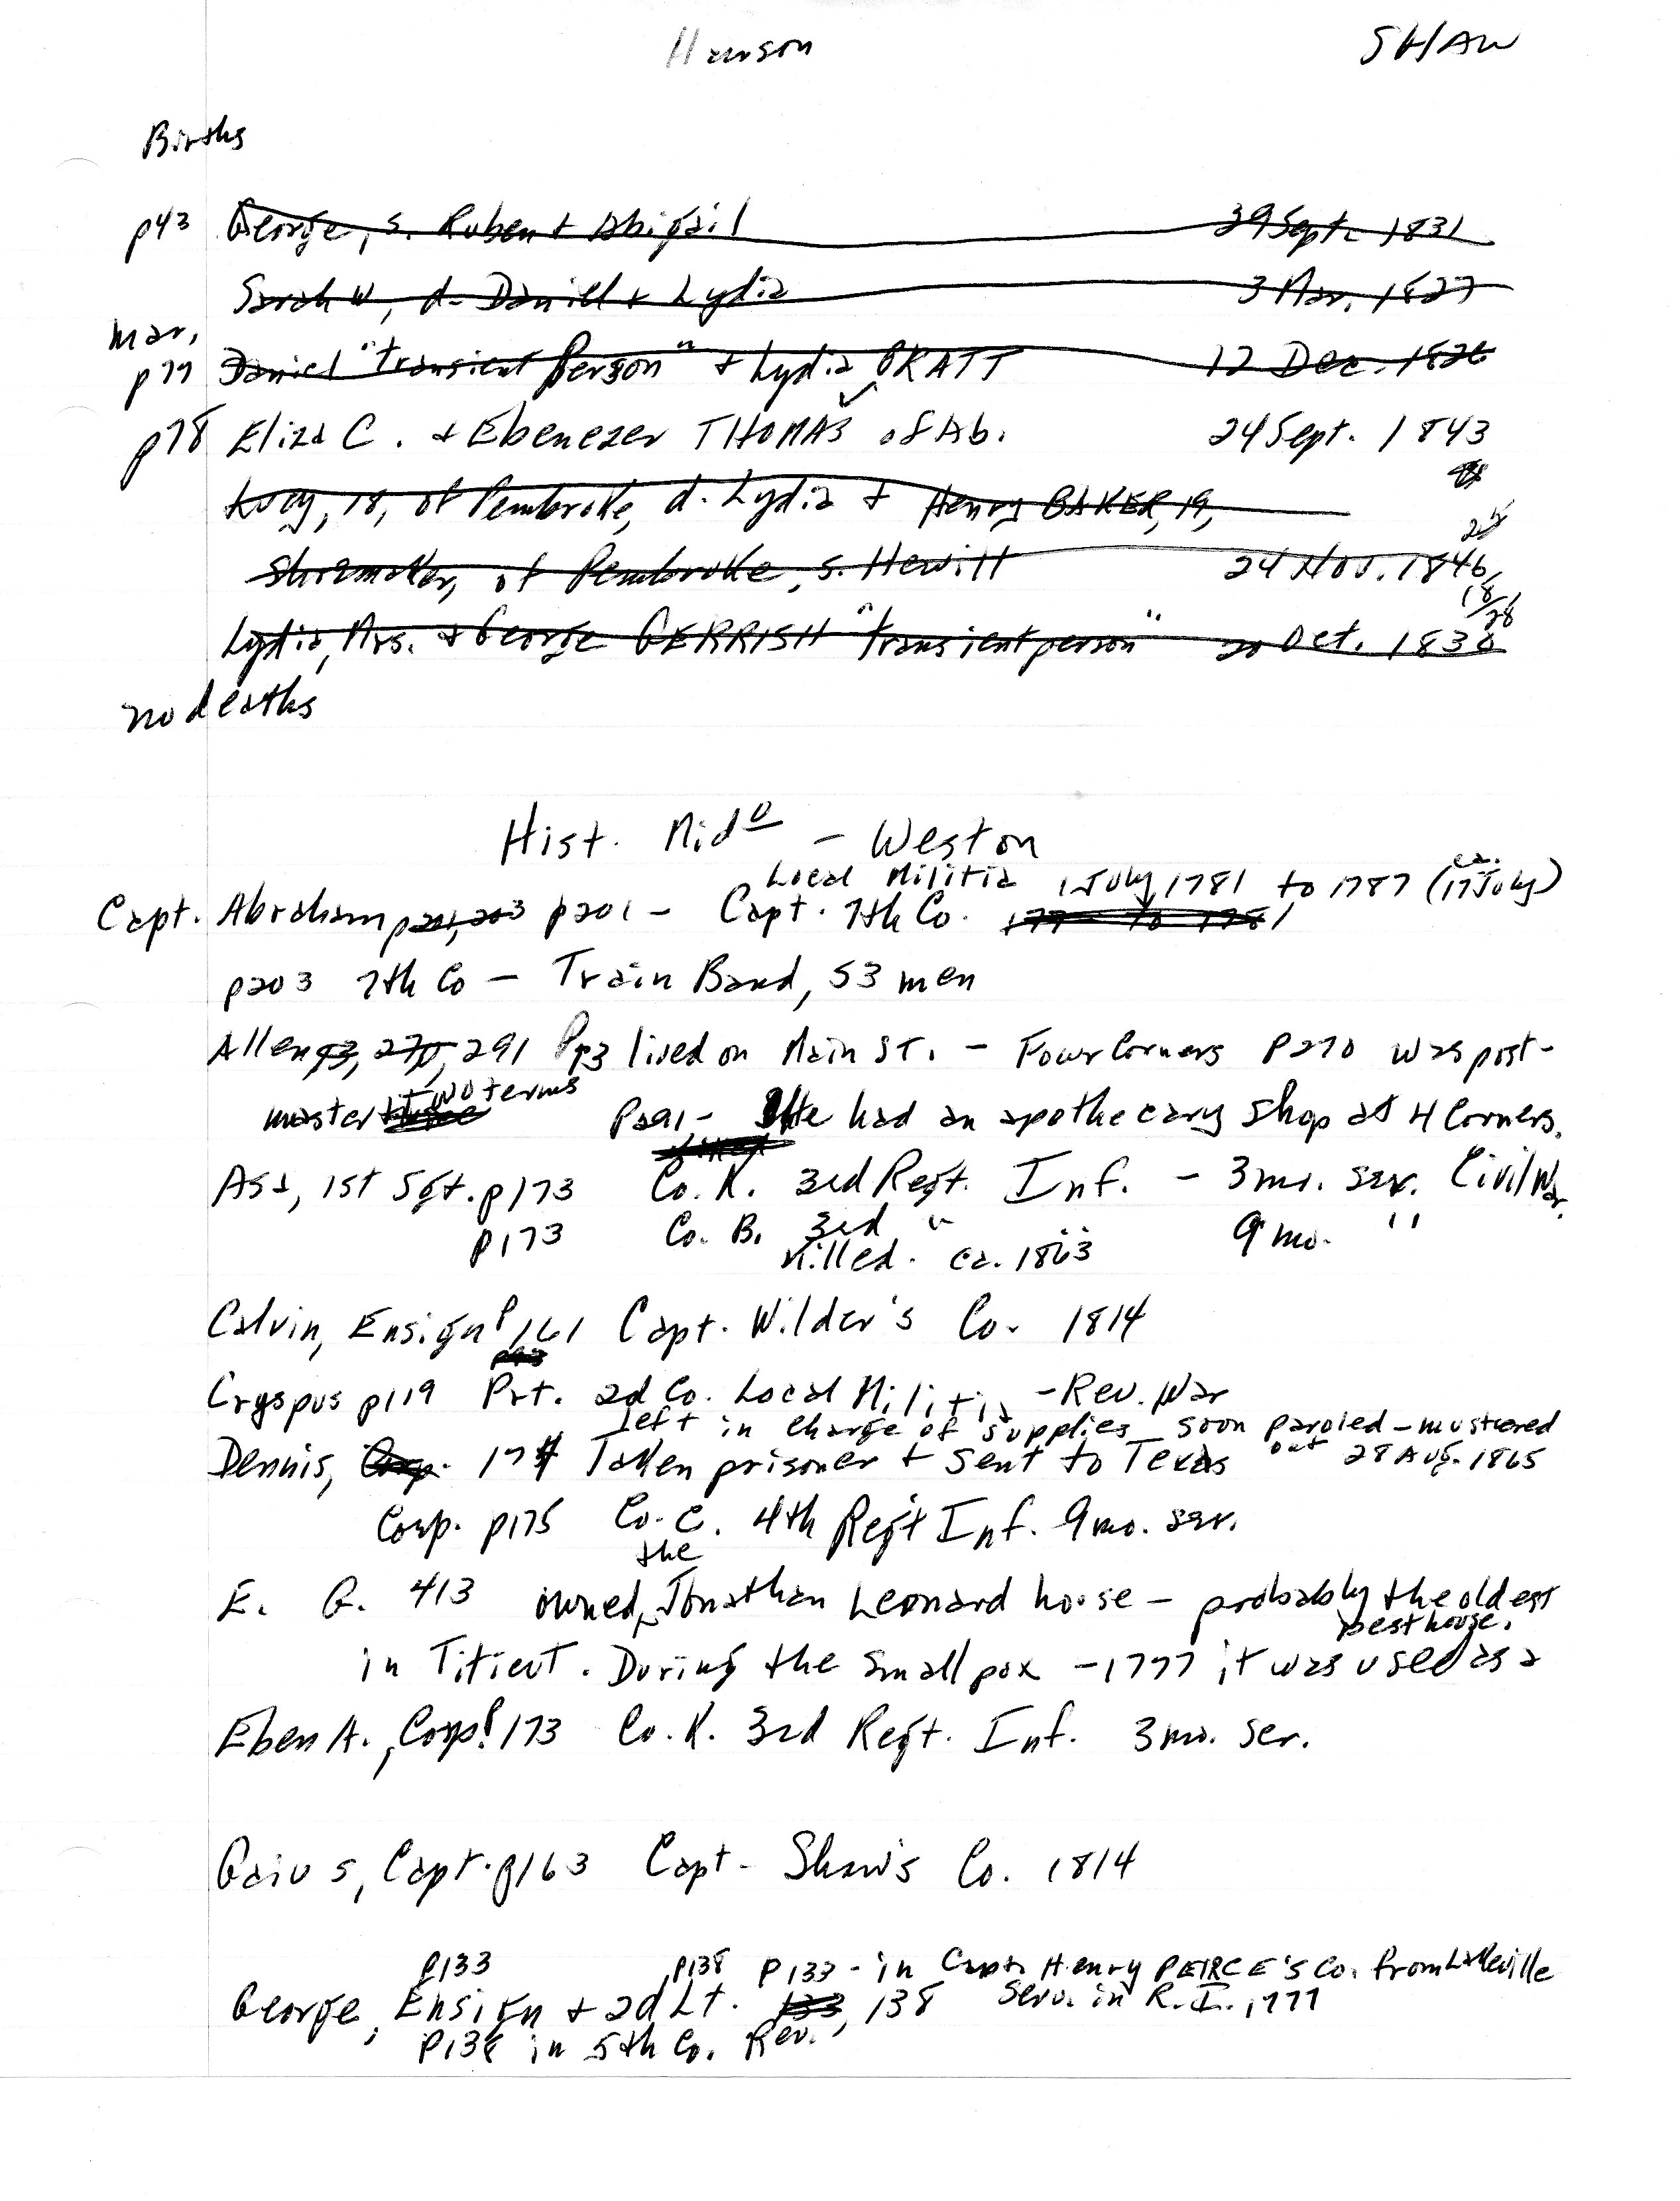 Hanson SHAW
Births
p43 George, s. Ruben + Abigail 29 Sept. 1831
Sarah W, d. Daniel + Lydia 3 Mar. 1827
mar.
p77 Daniel "transient Person" + Lydia PRATT 12 Dec. 1826
p78 Eliza C. + Ebenezer THOMAS of Ab. 24 Sept. 1843
Lucy, 18, of Pembroke, d. Lydia + Henry BAKER, 19,
Shoemaker, of Pembroke, s. Hewitt 24 Nov. 1846
25
18/28
Lydia, Mrs. + George GERRISH "transient person" 20 Oct. 1830
no deaths
Hist. Mid o – Weston
Local Militia 1 July 1781 to 1787 (ca. 17 July)
Capt. Abraham p201,203 p201 – Capt. 7th Co. 177 to 1781
p203 7th Co – Train Band, 53 men
Allen 93, 270, 291 P93 lived on Main ST. – Four Corners P270 was post-
master two terms P291 – He had an apothecary shop at 4 Corners.
Asa, 1st Sgt. p173 Co. K. 3rd Regt. Inf. – 3 mo. ser. Civil War.
p173 Co. B. 3rd " " 9 mo. "
Killed. ca. 1863
Calvin, Ensign P161 Capt. Wilder's Co. 1814
Cryspus p119 Prt. 2d Co. Local Militia – Rev. War
left in charge of supplies soon paroled – mustered
Dennis, Corp. 174 Taken prisoner + sent to Texas out 28 Aug. 1865
Corp. p175 Co. C. 4th Reg't Inf. 9 mo. ser.
the
E. G. 413 owned Jonathan Leonard house – probably the oldest
pesthouse.
in Titicut. During the small pox – 1777 it was used as a
Eben A., Corp. P173 Co. K. 3rd Regt. Inf. 3 mo. ser.
Gaius, Capt. p163 Capt – Shaw's Co. 1814
P133 P138 P133 – in Capt. Henry PEIRCE'S Co. from Lakeville
George, Ensign + 2d Lt. 133, 138 Serv. in R.I. 1777
P138 in 5th Co. Rev.